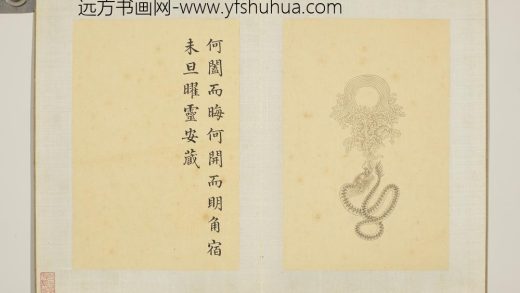 远方书画网-www.yfshuhua.com
何闔而晦何開而明角宿
未旦曜靈安藏